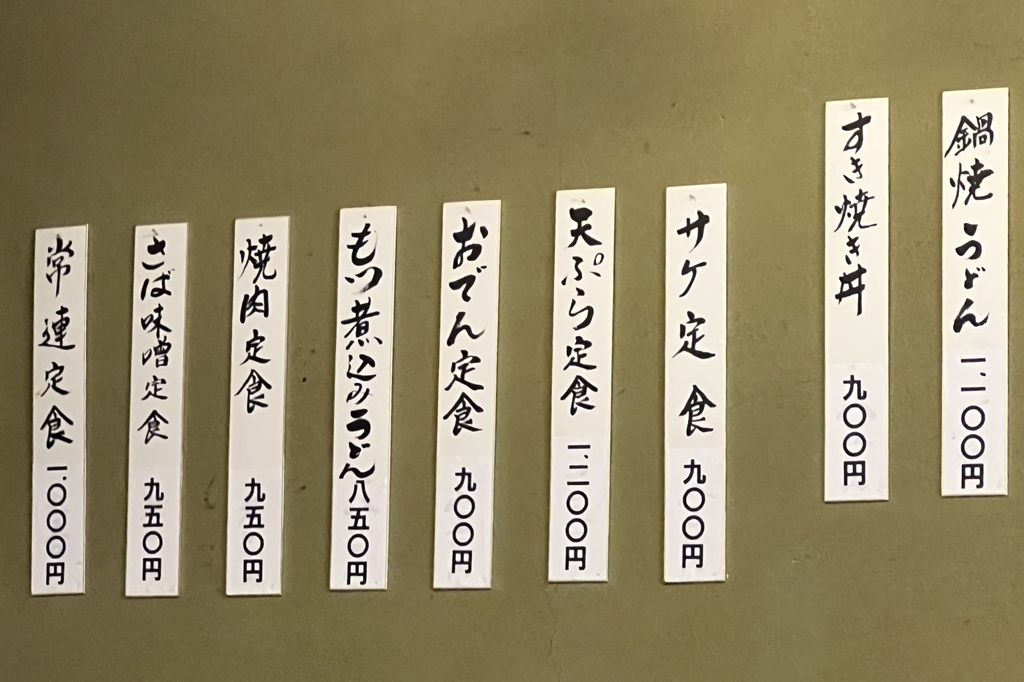 鍋焼うどん 一、一〇〇円
すき焼き丼 九〇〇円
サケ定食 九〇〇円
天ぷら定食 一、二〇〇円
おでん定食 九〇〇円
もつ煮込みうどん 八五〇円
焼肉定食 九五〇円
さば味噌定食 九五〇円
常連定食 一、〇〇〇円